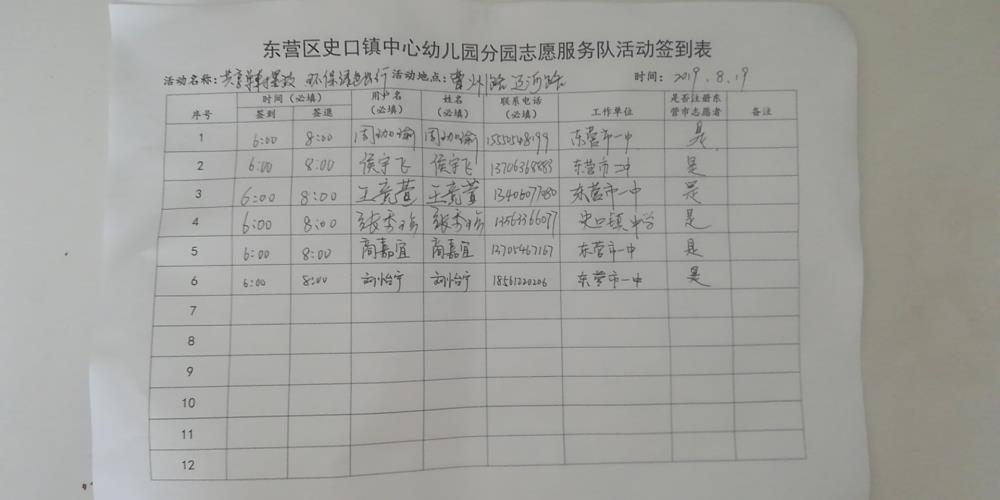 东营区史口镇中心幼儿园分园志愿服务队活动签到表
活动名称: 共享单车摆放 环保绿色出行 活动地点: 曹州路 运河路 时间: 2019.8.19
序号 时间（必填） 签到 签退 用户名（必填） 姓名（必填） 联系电话（必填） 工作单位 是否注册东营市志愿者 备注
1 6:00 8:00 15550548199 东营市一中 是
2 6:00 8:00 侯宇飞 侯宇飞 13706368883 东营市二中 是
3 6:00 8:00 东营市一中 是
4 6:00 8:00 13563366077 史口镇中学 是
5 6:00 8:00 商嘉宜 商嘉宜 13705467167 东营市一中 是
6 6:00 8:00 刘怡宁 刘怡宁 18561220206 东营市一中 是
7
8
9
10
11
12